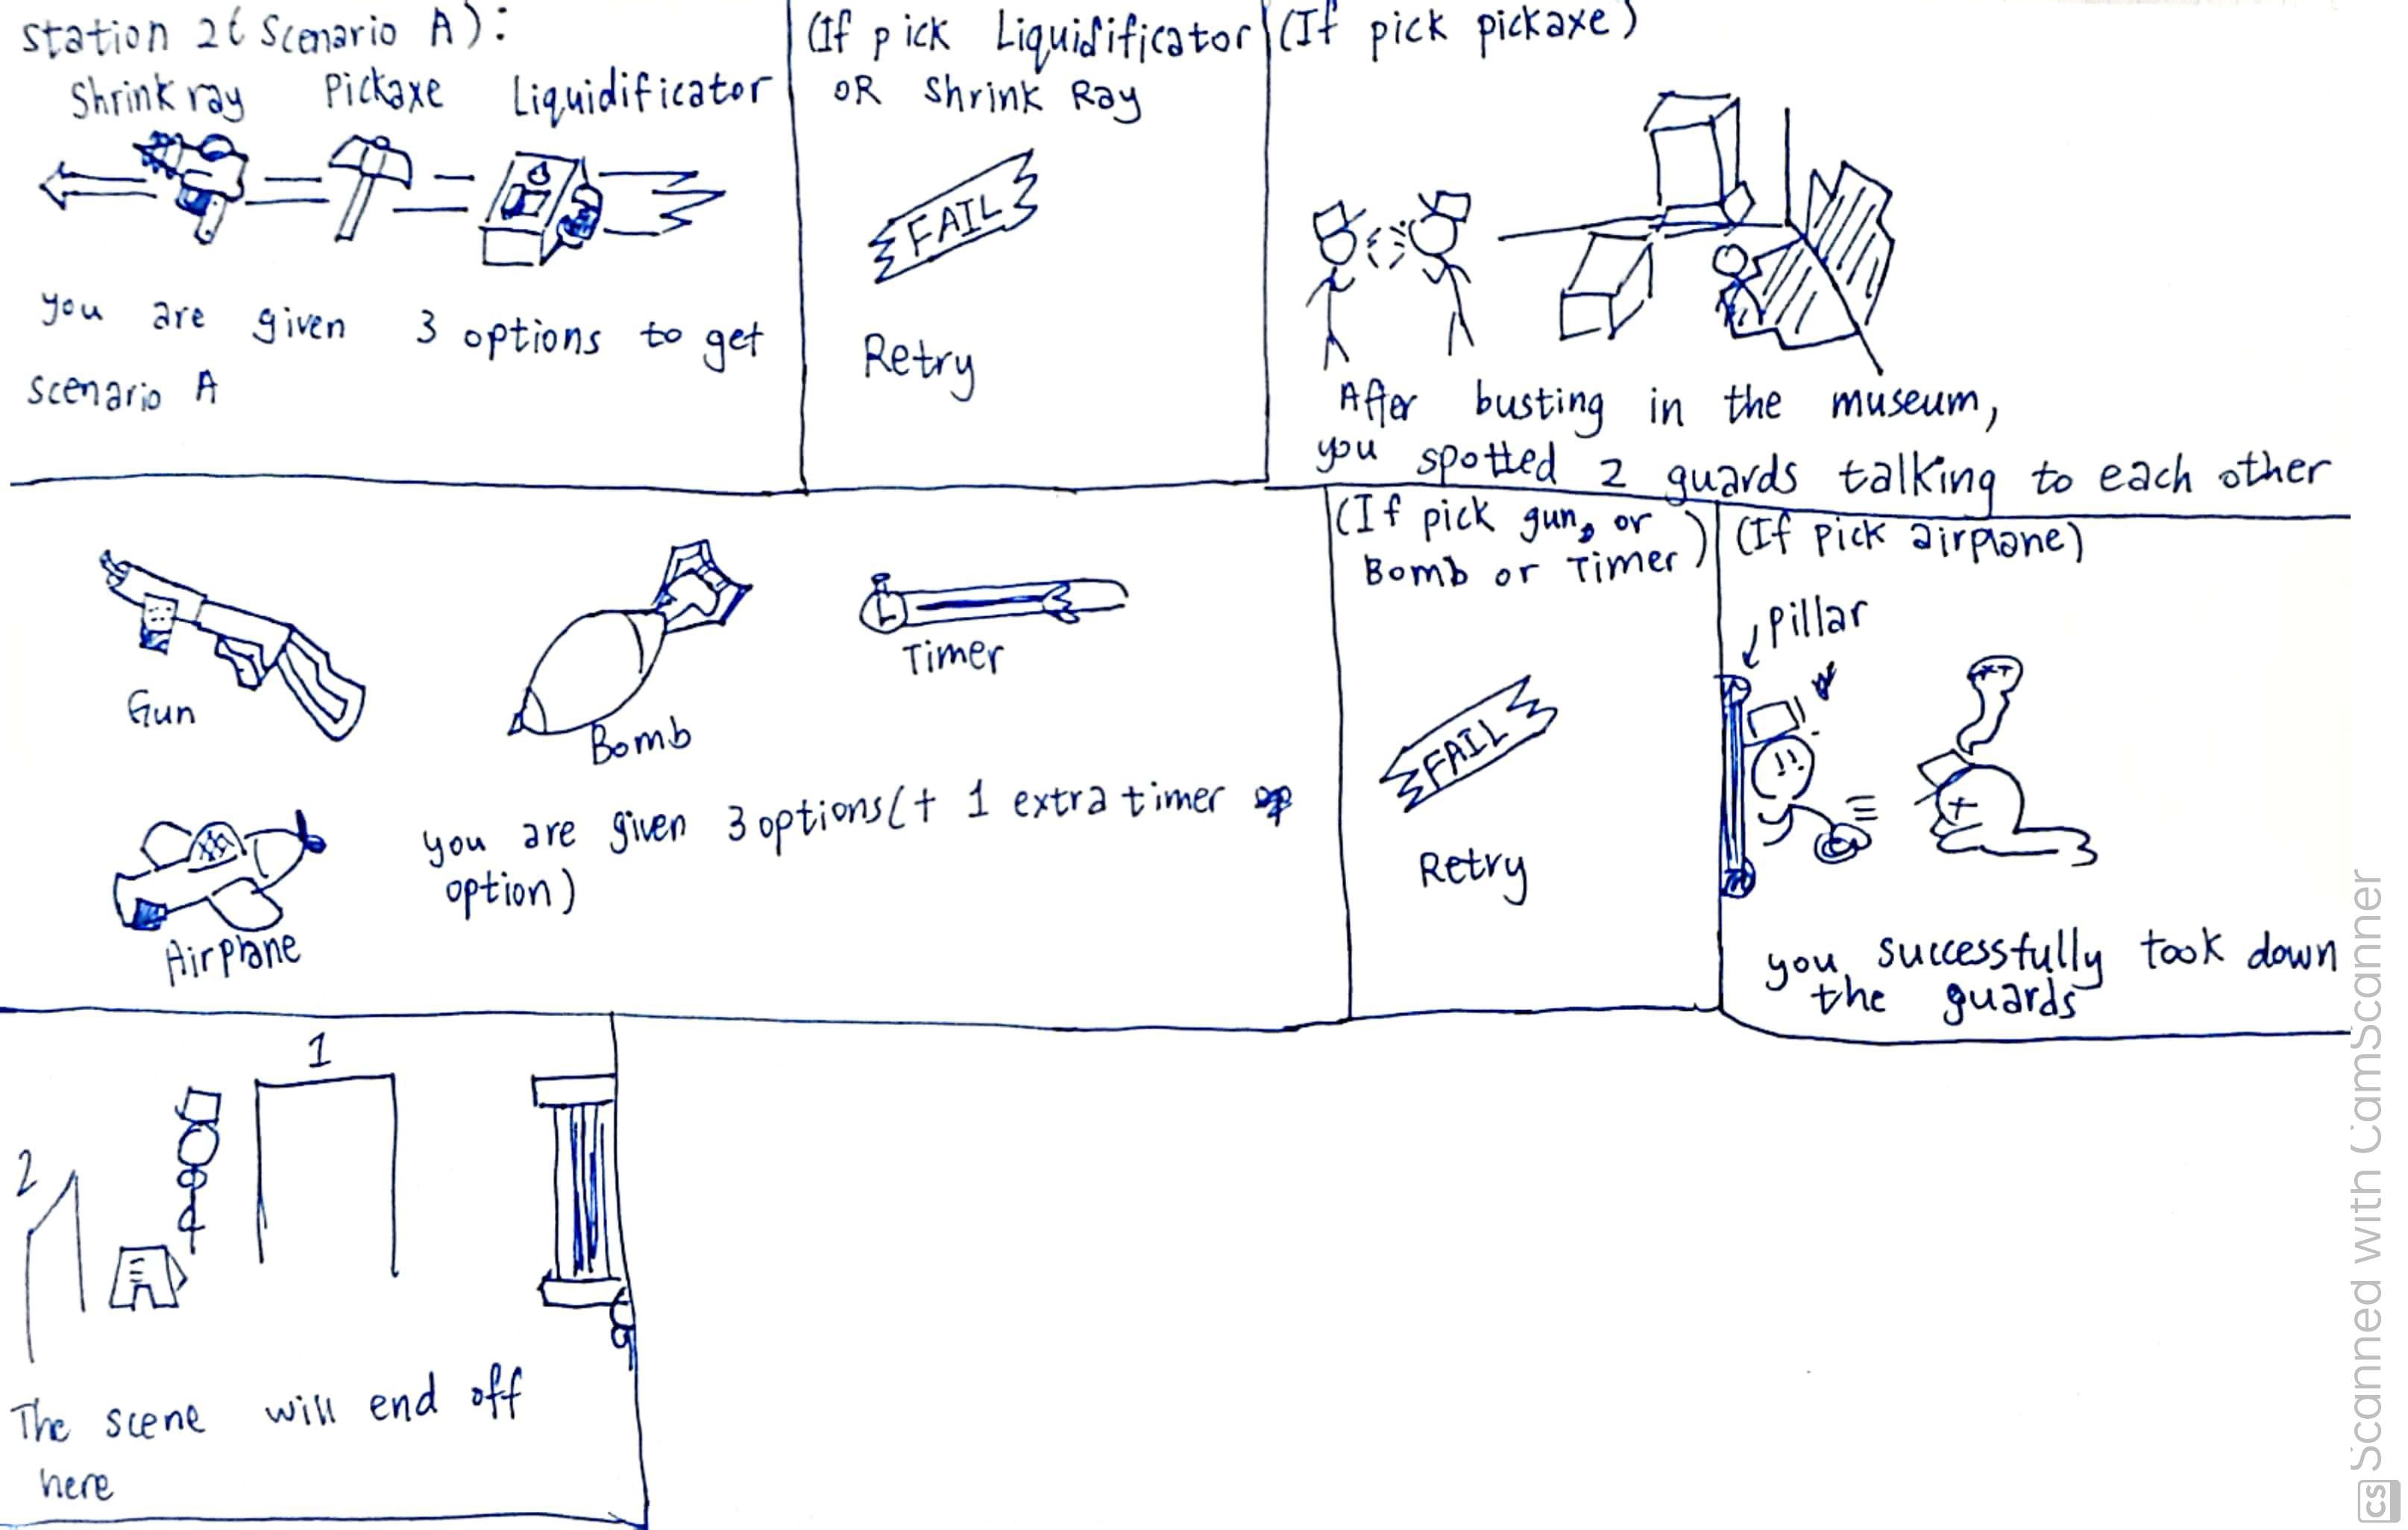 Station 2( Scenario A):
Shrink ray Pickaxe Liquidificator
you are given 3 options to get
scenario A
(If pick Liquidificator
OR Shrink Ray
FAIL
Retry
(If pick pickaxe)
After busting in the museum,
you spotted 2 guards talking to each other
Gun
Bomb
Timer
Airplane
you are given 3 options (+ 1 extra timer
option)
(If pick gun, or
Bomb or Timer)
FAIL
Retry
(If pick airplane)
Pillar
you successfully took down
the guards
1
2
The scene will end off
here
CS Scanned with CamScanner